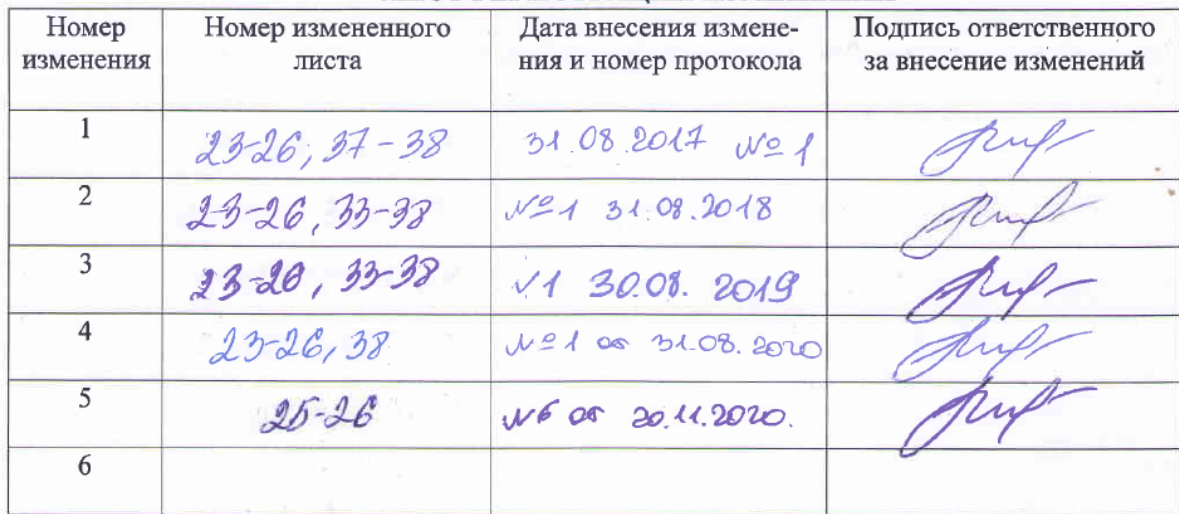 Номер изменения | Номер измененного листа | Дата внесения измене-ния и номер протокола | Подпись ответственного за внесение изменений
1 | 23-26, 37-38 | 31.08.2017 № 1
2 | 23-26, 33-38 | №1 31.08.2018
3 | 23-26, 33-38 | №1 30.08. 2019
4 | 23-26, 38 | №1 от 31.08.2020
5 | 25-26 | №6 от 20.11.2020.
6